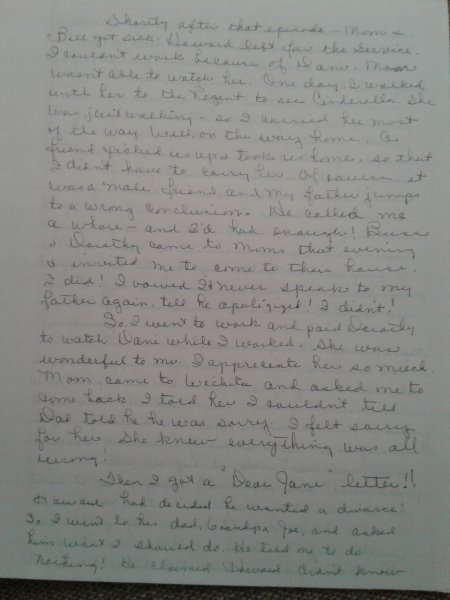 Shortly after that episode - Mom &
Bill got sick. Howard left for the Service.
I couldn't work because of Dani. Mom
wasn't able to watch her. One day, I walked
with her to the Regent to see Cinderella. She
was just walking - so I carried her most
of the way. Well, on the way home, a
friend picked us up & took us home, so that
I didn't have to carry her. Of course, it
was a male friend and my father jumps
to a wrong conclusion. He called me
a whore - and I'd had enough!
& Dorothy came to Moms that evening
& invited me to come to their house.
I did! I vowed I'd never speak to my
father again, till he apoligized! I didn't!
So I went to work and paid Dorothy
to watch Dani while I worked. She was
wonderful to me. I appreciate her so much.
Mom came to Wichita and asked me to
come back. I told her I couldn't till
Dad told he he was sorry. I felt sorry
for her. She knew everything was all
wrong!
Then I got a "Dear Jane" letter!!
Howard had decided he wanted a divorce!
So I went to his dad, Grandpa Joe, and asked
him what I should do. He told me to do
nothing! He claimed Howard didn't know